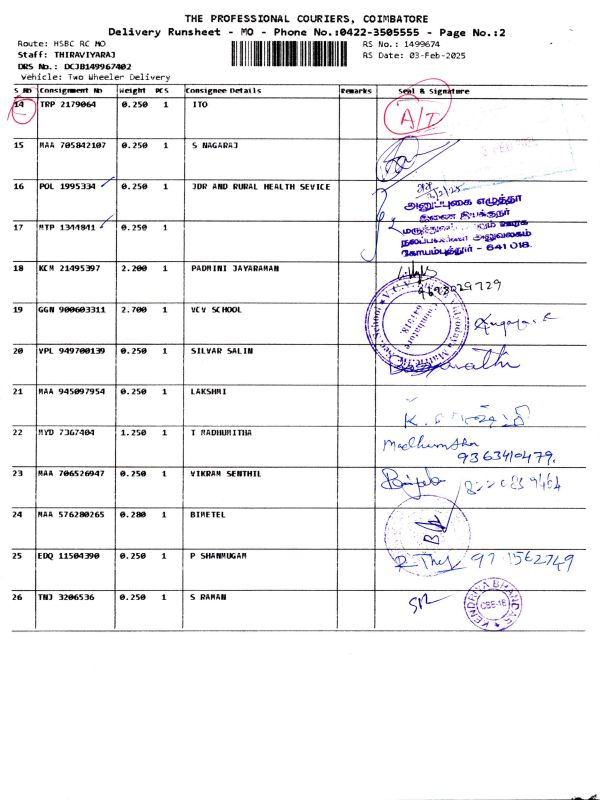 THE PROFESSIONAL COURIERS, COIMBATORE
Delivery Runsheet - MO - Phone No.:0422-3505555 - Page No.:2
Route: HSBC RC MO
RS No.: 1499674
Staff: THIRAVIYARAJ
RS Date: 03-Feb-2025
DRS No.: DCJB149967402
Vehicle: Two Wheeler Delivery
S No Consignment No Weight PCS Consignee Details Remarks Seal & Signature
14 TRP 2179064 0.250 1 ITO A/T
15 MAA 705842107 0.250 1 S NAGARAJ
16 POL 1995334 0.250 1 JDR AND RURAL HEALTH SEVICE
அனுப்புகை எழுத்தர்
இணை இயக்குநர்
17 MTP 1344841 0.250 1
நலப்பணிகள் அலுவலகம்
கோயம்புத்தூர் - 641 018.
18 KCM 21495397 2.200 1 PADMINI JAYARAMAN
19 GGN 900603311 2.700 1 VCV SCHOOL
20 VPL 949700139 0.250 1 SILVAR SALIN
21 MAA 945097954 0.250 1 LAKSHMI
22 MYD 7367404 1.250 1 T MADHUMITHA Madhumitha
9363410479.
23 MAA 706526947 0.250 1 VIKRAM SENTHIL
24 MAA 576280265 0.280 1 BIMETEL
25 EDQ 11504390 0.250 1 P SHANMUGAM
26 TNJ 3206536 0.250 1 S RAMAN
KENDRIYA BHANDAR
CBE-18